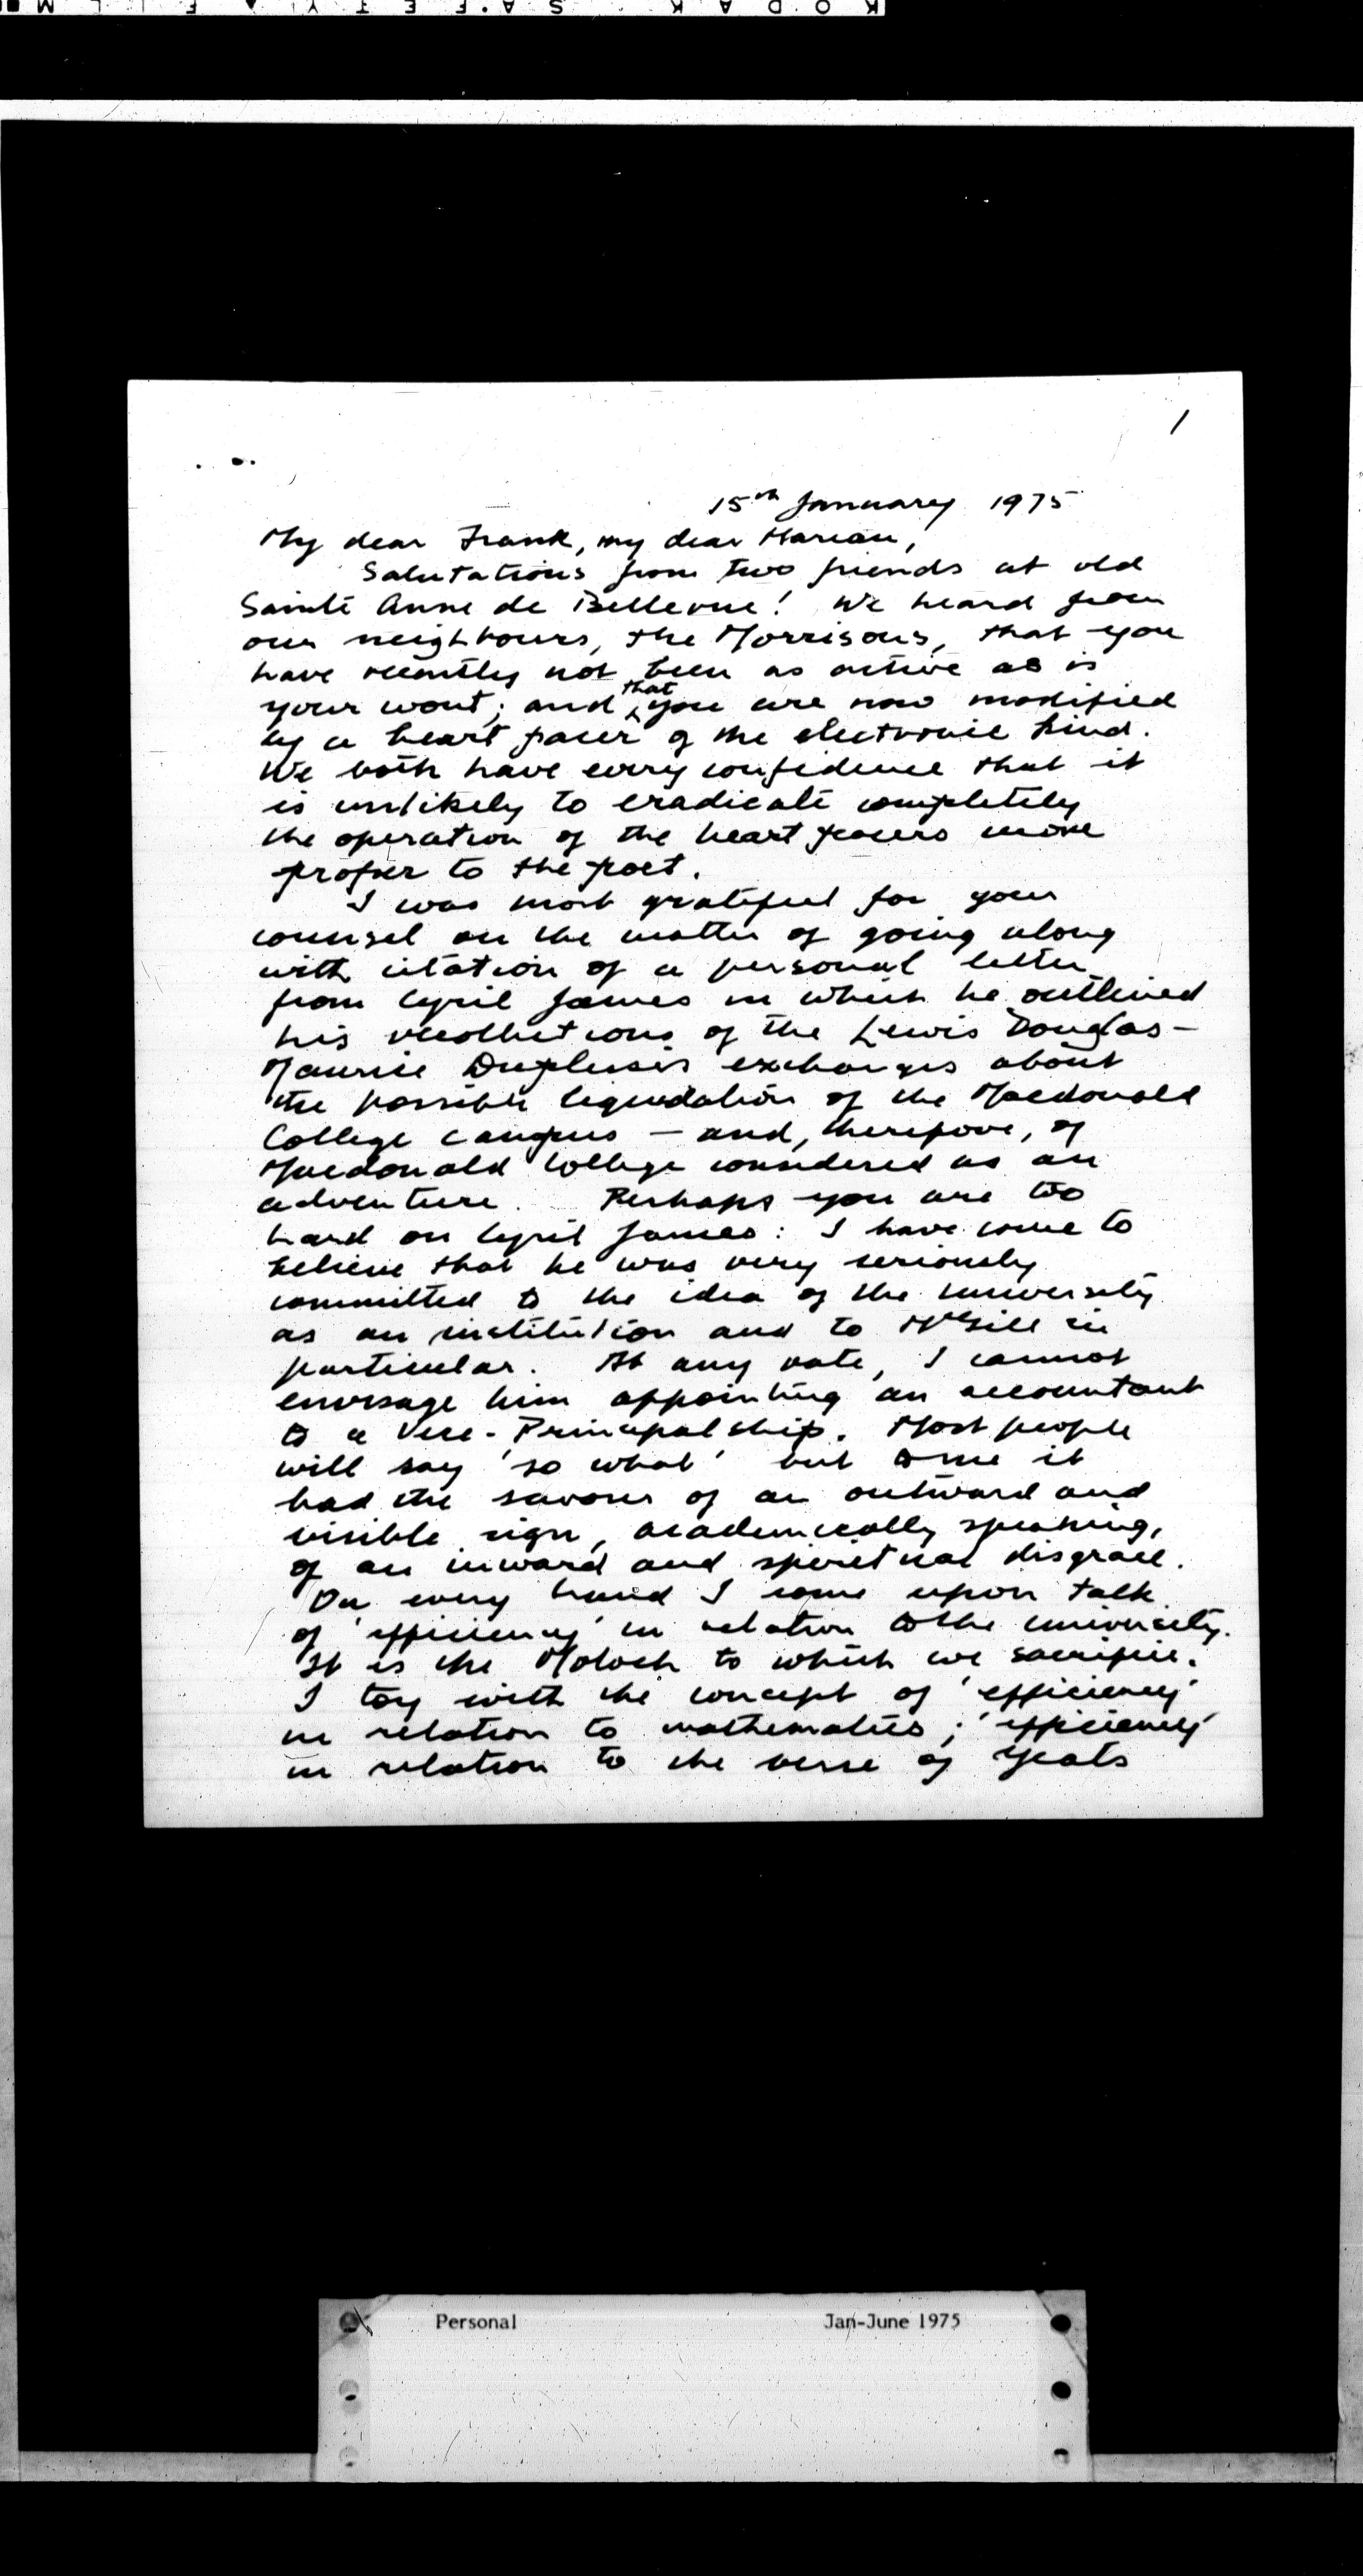 KODAK SAFETY FILM
1
15th January 1975
My dear Frank, my dear Marian,
Salutations from two friends at old
Sainte Anne de Bellevue! We heard from
our neighbours, the Morrisons, that you
have recently not been as active as is
your wont; and that you are now modified
by a heart pacer of the electronic kind.
We both have every confidence that it
is unlikely to eradicate completely
the operation of the heart pacers more
proper to the poet.
I was most grateful for your
counsel on the matter of going along
with citation of a personal letter
from Cyril James in which he outlined
his recollections of the Lewis Douglas-
Maurice Duplessis exchanges about
the possible liquidation of the Macdonald
College campus – and, therefore, of
Macdonald College considered as an
adventure. Perhaps you are too
hard on Cyril James: I have come to
believe that he was very seriously
committed to the idea of the university
as an institution and to McGill in
particular. At any rate, I cannot
envisage him appointing an accountant
to a Vice-Principalship. Most people
will say 'so what' but to me it
had the savour of an outward and
visible sign, academically speaking,
of an inward and spiritual disgrace.
On every hand I come upon talk
of 'efficiency' in relation to the university.
It is the Moloch to which we sacrifice.
I toy with the concept of 'efficiency'
in relation to mathematics; 'efficiency'
in relation to the verse of Yeats
Personal Jan-June 1975